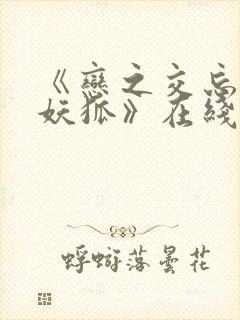 《恋之交忘
妖狐》在线
蜉蝣落昙花